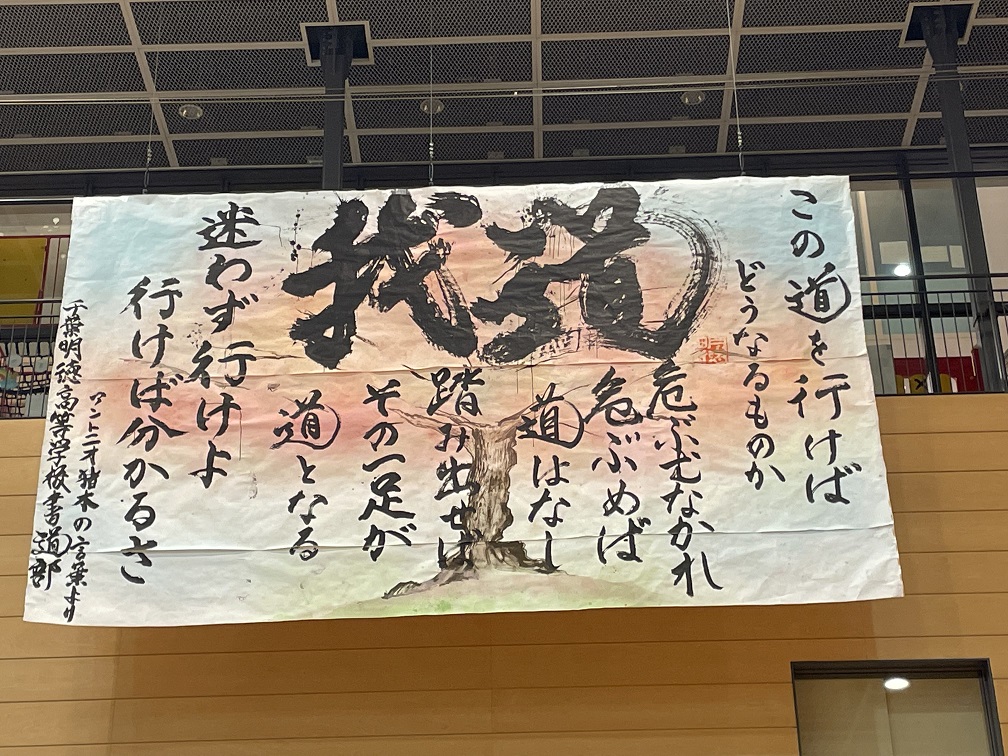 我道
この道を行けば
どうなるものか
危ぶむなかれ
危ぶめば
道はなし
踏み出せば
その一足が
道となる
迷わず行けよ
行けば分かるさ
アントニオ猪木の言葉より
千葉明徳高等学校書道部